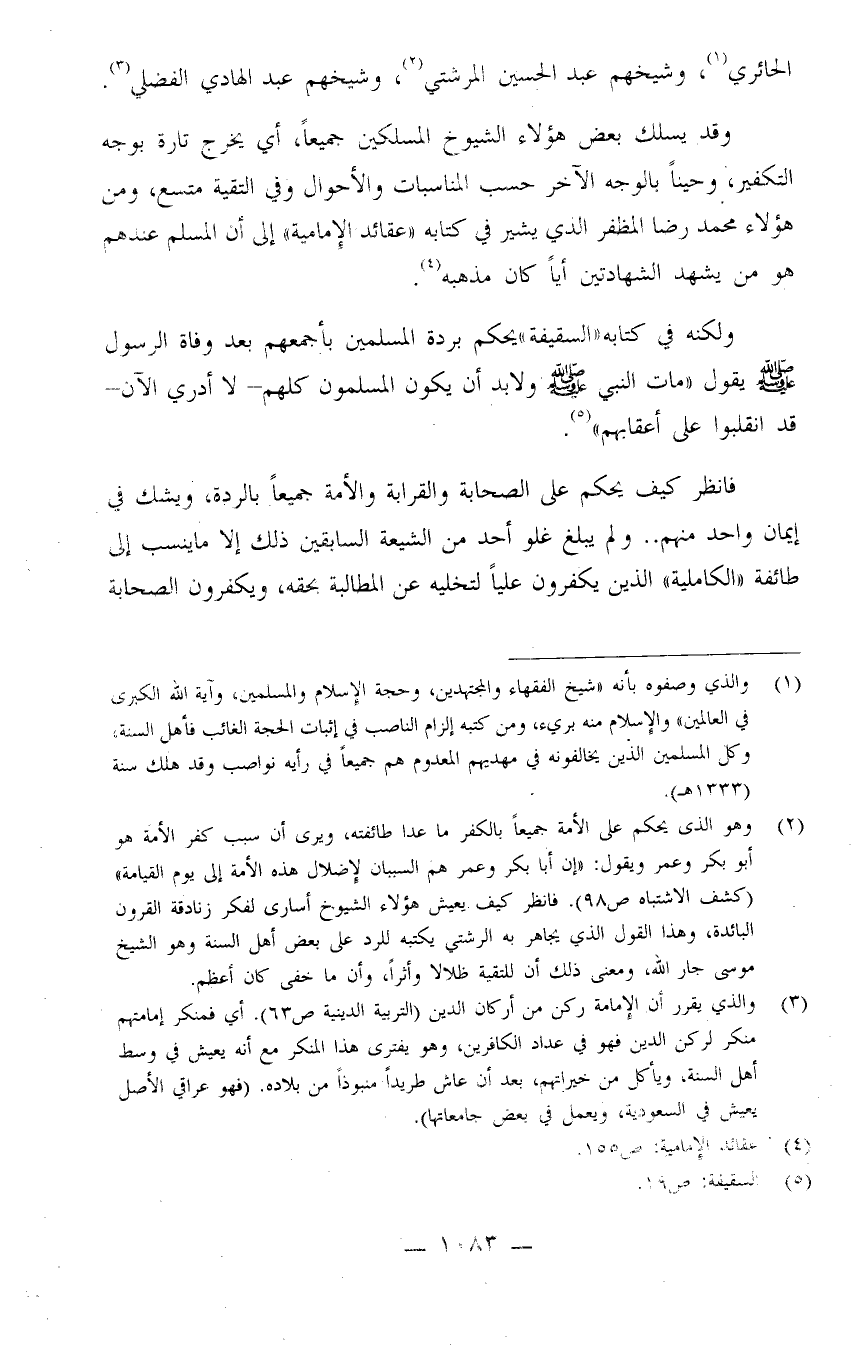 الحائري(١)، وشيخهم عبد الحسين المرشتي(٢)، وشيخهم عبد الهادي الفضلي(٣).
وقد يسلك بعض هؤلاء الشيوخ المسلكين جميعاً، أي يخرج تارة بوجه
التكفير، وحيناً بالوجه الآخر حسب المناسبات والأحوال وفي التقية متسع، ومن
هؤلاء محمد رضا المظفر الذي يشير في كتابه «عقائد الإمامية» إلى أن المسلم عندهم
هو من يشهد الشهادتين أياً كان مذهبه(٤).
ولكنه في كتابه«السقيفة»يحكم بردة المسلمين بأجمعهم بعد وفاة الرسول
ﷺ يقول «مات النبي ﷺ ولابد أن يكون المسلمون كلهم– لا أدري الآن–
قد انقلبوا على أعقابهم»(٥).
فانظر كيف يحكم على الصحابة والقرابة والأمة جميعاً بالردة، ويشك في
إيمان واحد منهم.. ولم يبلغ غلو أحد من الشيعة السابقين ذلك إلا ماينسب إلى
طائفة «الكاملية» الذين يكفرون علياً لتخليه عن المطالبة بحقه، ويكفرون الصحابة
(١) والذي وصفوه بأنه «شيخ الفقهاء والمجتهدين، وحجة الإسلام والمسلمين، وآية الله الكبرى
في العالمين» والإسلام منه بريء، ومن كتبه إلزام الناصب في إثبات الحجة الغائب فأهل السنة،
وكل المسلمين الذين يخالفونه في مهديهم المعدوم هم جميعاً في رأيه نواصب وقد هلك سنة
(١٣٣٣هـ).
(٢) وهو الذى يحكم على الأمة جميعاً بالكفر ما عدا طائفته، ويرى أن سبب كفر الأمة هو
أبو بكر وعمر ويقول: «إن أبا بكر وعمر هم السببان لإضلال هذه الأمة إلى يوم القيامة»
(كشف الاشتباه ص٩٨). فانظر كيف يعيش هؤلاء الشيوخ أسارى لفكر زنادقة القرون
البائدة، وهذا القول الذي يجاهر به الرشتي يكتبه للرد على بعض أهل السنة وهو الشيخ
موسى جار الله، ومعنى ذلك أن للتقية ظلالا وأثراً، وأن ما خفى كان أعظم.
(٣) والذي يقرر أن الإمامة ركن من أركان الدين (التربية الدينية ص٦٣). أي فمنكر إمامتهم
منكر لركن الدين فهو في عداد الكافرين، وهو يفترى هذا المنكر مع أنه يعيش في وسط
أهل السنة، ويأكل من خيراتهم، بعد أن عاش طريداً منبوذاً من بلاده. (فهو عراقي الأصل
يعيش في السعودية، ويعمل في بعض جامعاتها).
(٤) عقائد الإمامية: ص١٥٥.
(٥) السقيفة: ص١٩.
— ١٠٨٣ —